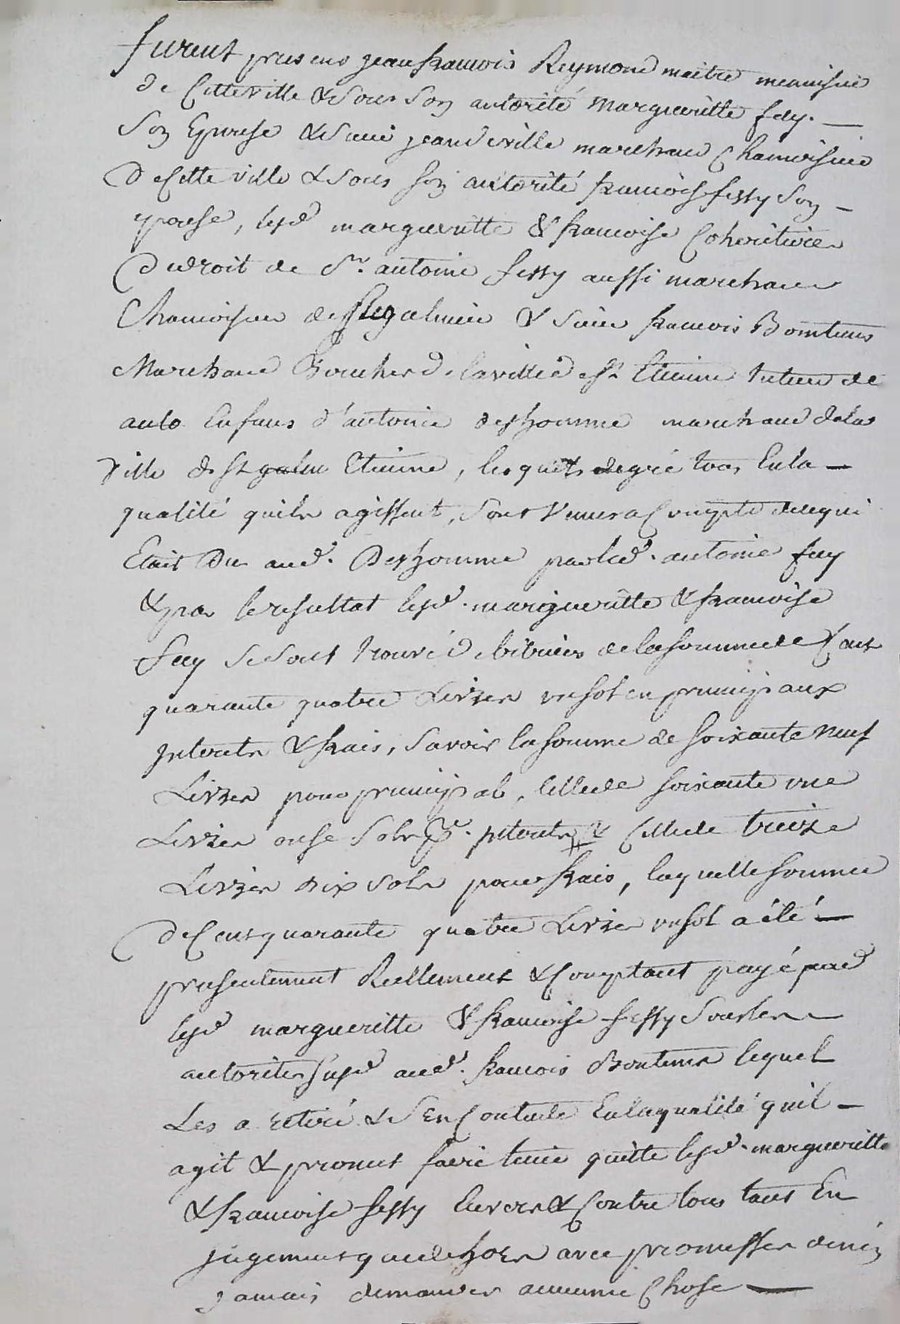 furent presens jean francois Reymond maitre menuisie
de Cetteville & sous son autorité margueritte fessy.
Son Epouse & sieur jean deville marchand Chamoisieur
de Cette ville & sous son autorité francoise fessy Son
epouse, lesd. margueritte & francoise Coheritieres
de droit de Sr. antoine fessy aussi marchand
Chamoiseur de & sieur francois Bontems
Marchand Boucher de laville de St Etienne tuteur de
auto Enfans d'antoine deshomme marchand dela
Ville de St galm Etienne, lesquels degré tous Enla
qualité quils agissent, sont venus a Compte de ce qui
Etait Du aud. Deshomme par led. antoine fessy
& par le resultat lesd. margueritte & francoise
fessy se sont trouvé debitrices de lasomme de Cent
quarante quatre Livres un sol en principaux
interets & frais, savoir la somme de soixante neuf
Livres pour principal, celle de soixante une
Livres onse sols pr. interets & Celle de treize
Livres dix sols pour frais, laquelle somme
de Cent quarante quatre Livre un sol a été
presentement Reellement & Comptant payé par
lesd margueritte & francoise fessy sous les
autorites susd aud. francois Bontems lequel
Les a retiré & s'En Contente En la qualité quil
agit & promet faire tenir quitte lesd. margueritte
& francoise fessy Envers & Contre tous tant En
jugement que dehors avec promesses den
jamais demander aucune Chose